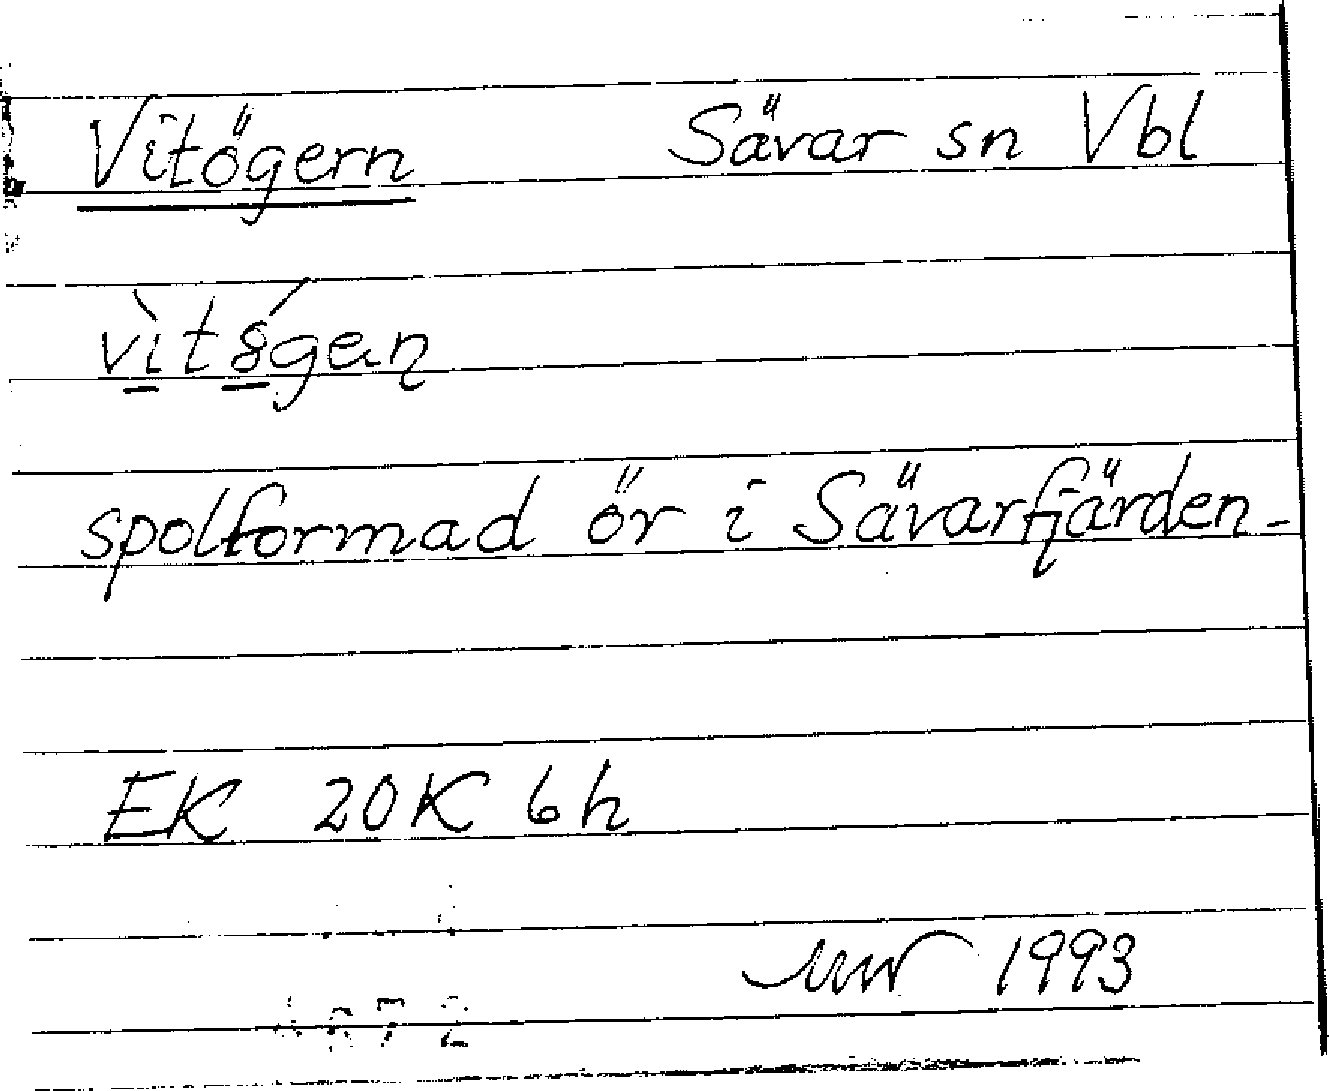 Vitögern Sävar sn Vbl
spolformad ör i Sävarfjärden
EK 20K 6h
1993